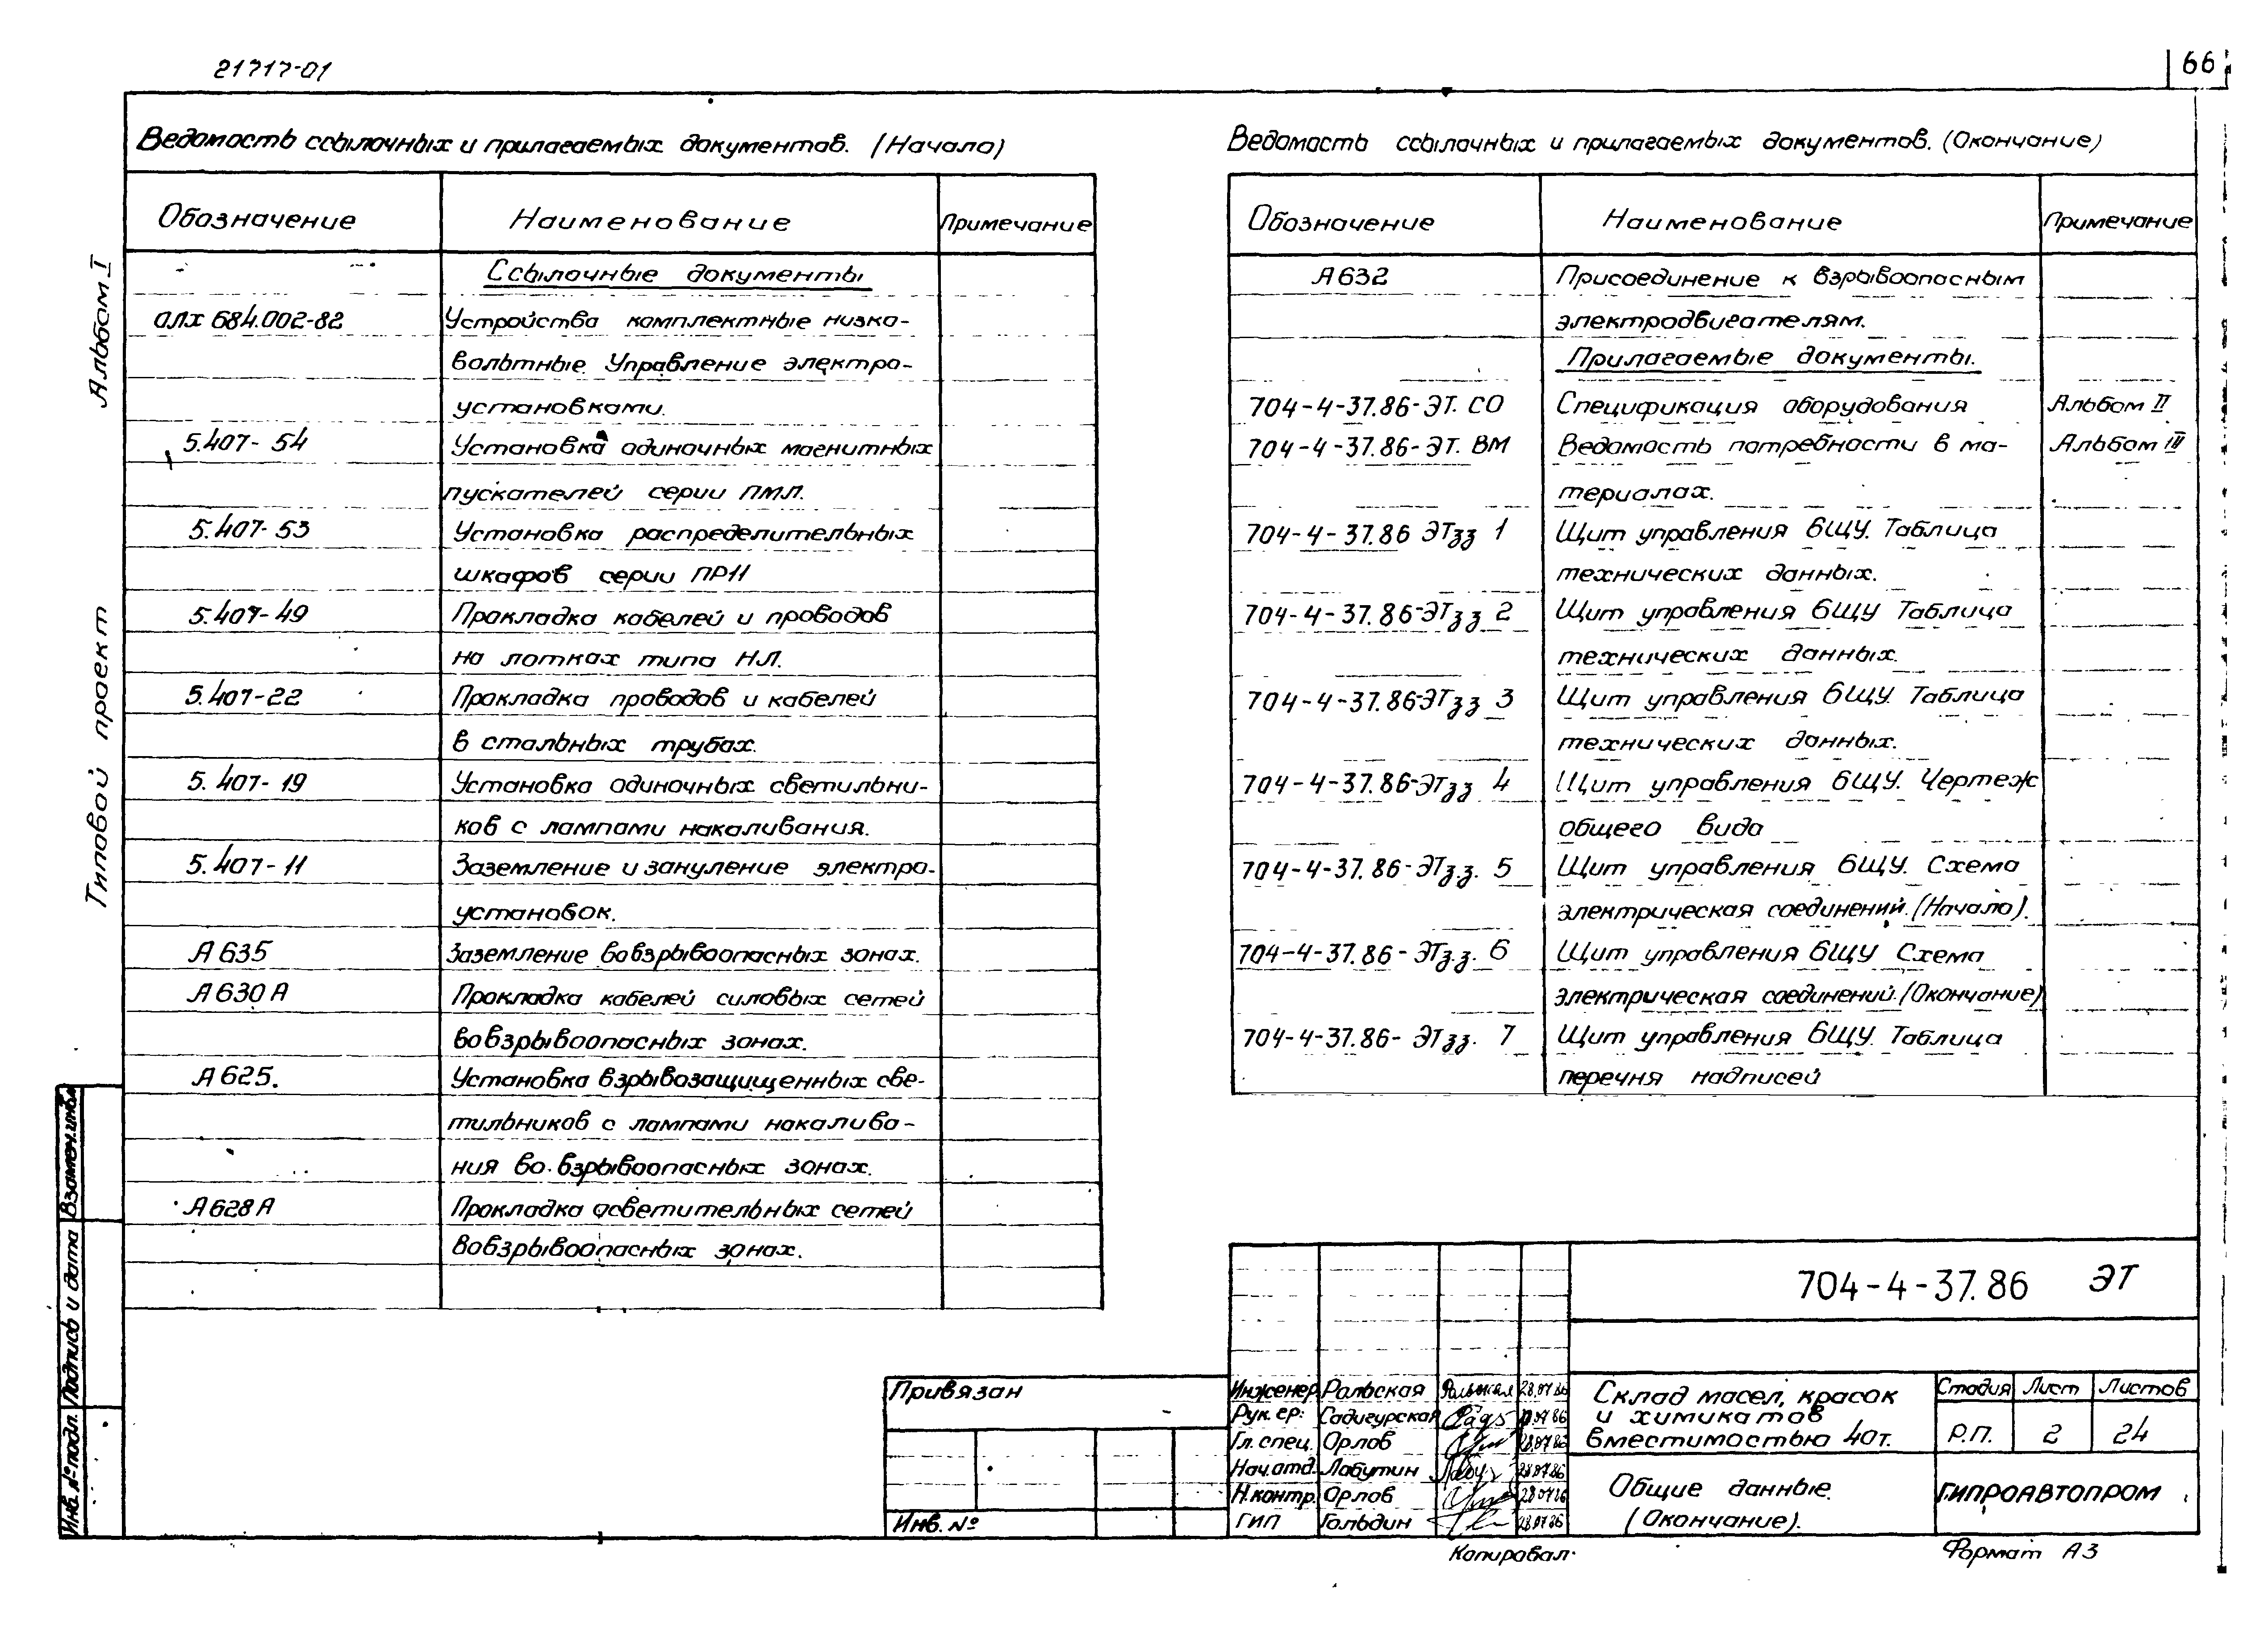 21717-01
66
Ведомость ссылочных и прилагаемых документов. (Начало)
Обозначение Наименование Примечание
Ссылочные документы
ОЛХ 684.002-82 Устройства комплектные низко-
вольтные. Управление электро-
установками.
5.407-54 Установка одиночных магнитных
пускателей серии ПМЛ.
5.407-53 Установка распределительных
шкафов серии ПР11
5.407-49 Прокладка кабелей и проводов
на лотках типа НЛ.
5.407-22 Прокладка проводов и кабелей
в стальных трубах.
5.407-19 Установка одиночных светильни-
ков с лампами накаливания.
5.407-11 Заземление и зануление электро-
установок.
А635 Заземление вовзрывоопасных зонах.
А630А Прокладка кабелей силовых сетей
вовзрывоопасных зонах.
А625. Установка взрывозащищенных све-
тильников с лампами накалива-
ния во взрывоопасных зонах.
А628А Прокладка осветительных сетей
вовзрывоопасных зонах.
Ведомость ссылочных и прилагаемых документов. (Окончание)
Обозначение Наименование Примечание
А632 Присоединение к взрывоопасным
электродвигателям.
Прилагаемые документы.
704-4-37.86-ЭТ. СО Спецификация оборудования Альбом II
704-4-37.86-ЭТ. ВМ Ведомость потребности в ма- Альбом III
териалах.
704-4-37.86 ЭТзз 1 Щит управления 6ЩУ. Таблица
технических данных.
704-4-37.86-ЭТзз 2 Щит управления 6ЩУ Таблица
технических данных.
704-4-37.86-ЭТзз 3 Щит управления 6ЩУ. Таблица
технических данных.
704-4-37.86-ЭТзз 4 Щит управления 6ЩУ. Чертеж
общего вида
704-4-37.86-ЭТз.з. 5 Щит управления 6ЩУ. Схема
электрическая соединений. (Начало).
704-4-37.86-ЭТз.з. 6 Щит управления 6ЩУ Схема
электрическая соединений. (Окончание)
704-4-37.86- ЭТзз. 7 Щит управления 6ЩУ. Таблица
перечня надписей
Альбом I
Типовой проект
Взамен.инв.
Подпись и дата
Инв. № подл.
Привязан
Инв. №
704-4-37.86 ЭТ
Инженер Ральская 28.07.86
Рук. гр. Садигурская
Гл. спец. Орлов 28.07.86
Нач. отд. Лабутин 28.07.86
Н.контр. Орлов 28.07.86
ГИП Гольдин 28.07.86
Склад масел, красок
и химикатов
вместимостью 40т.
Стадия Лист Листов
Р.П. 2 24
Общие данные.
(Окончание).
ГИПРОАВТОПРОМ
Копировал
Формат А3